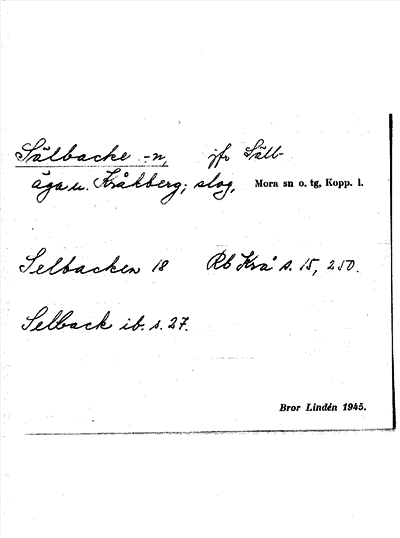 Sälbacke -n, jfr Sälb-
äga u. Kråkberg; slog, Mora sn o. tg, Kopp. l.
Selbacken 18 Rb Krå s. 15, 250.
Selback ib. s. 27.
Bror Lindén 1945.